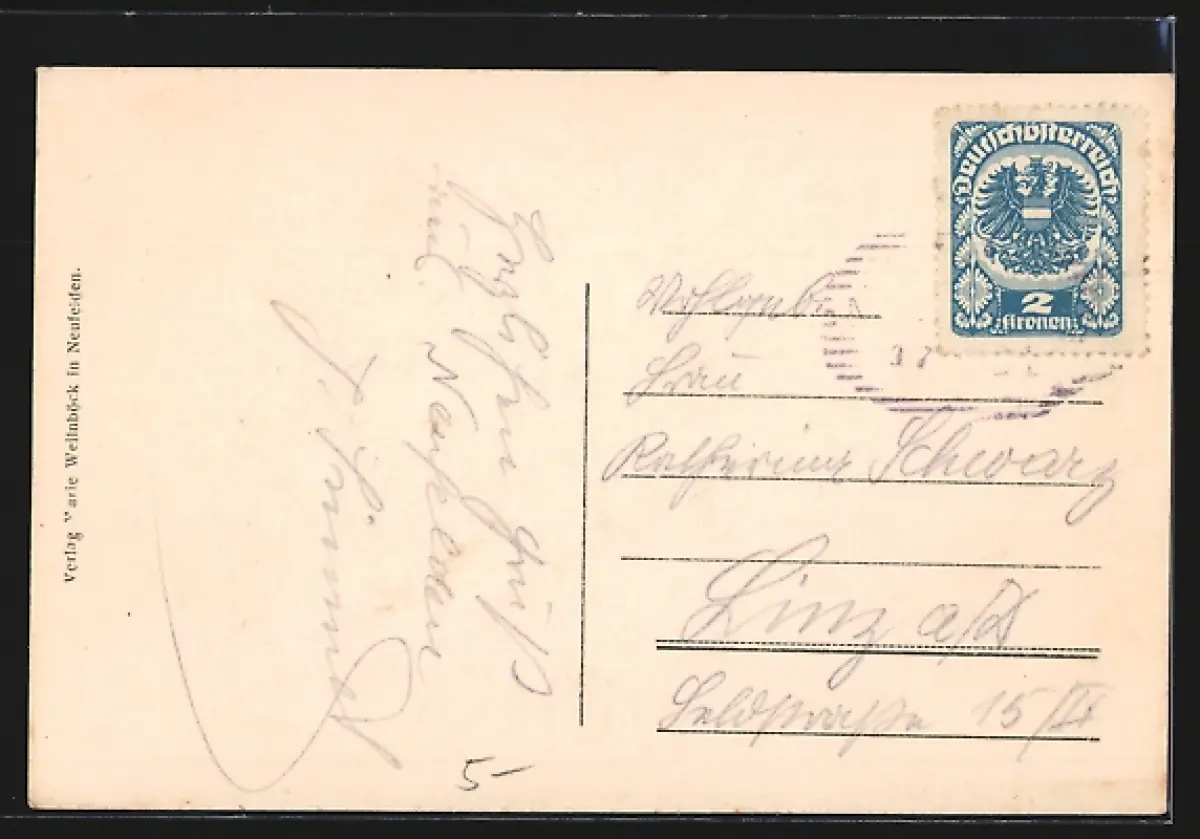 Verlag Marie Wellnböck in Neufelden.
Herzlichen Gruß
aus Neufelden
Deutschösterreich
2
Kronen
17
Wohlgeb.
Frau
Katharina Schwarz
Linz a/D
Feldstraße 15/II
5